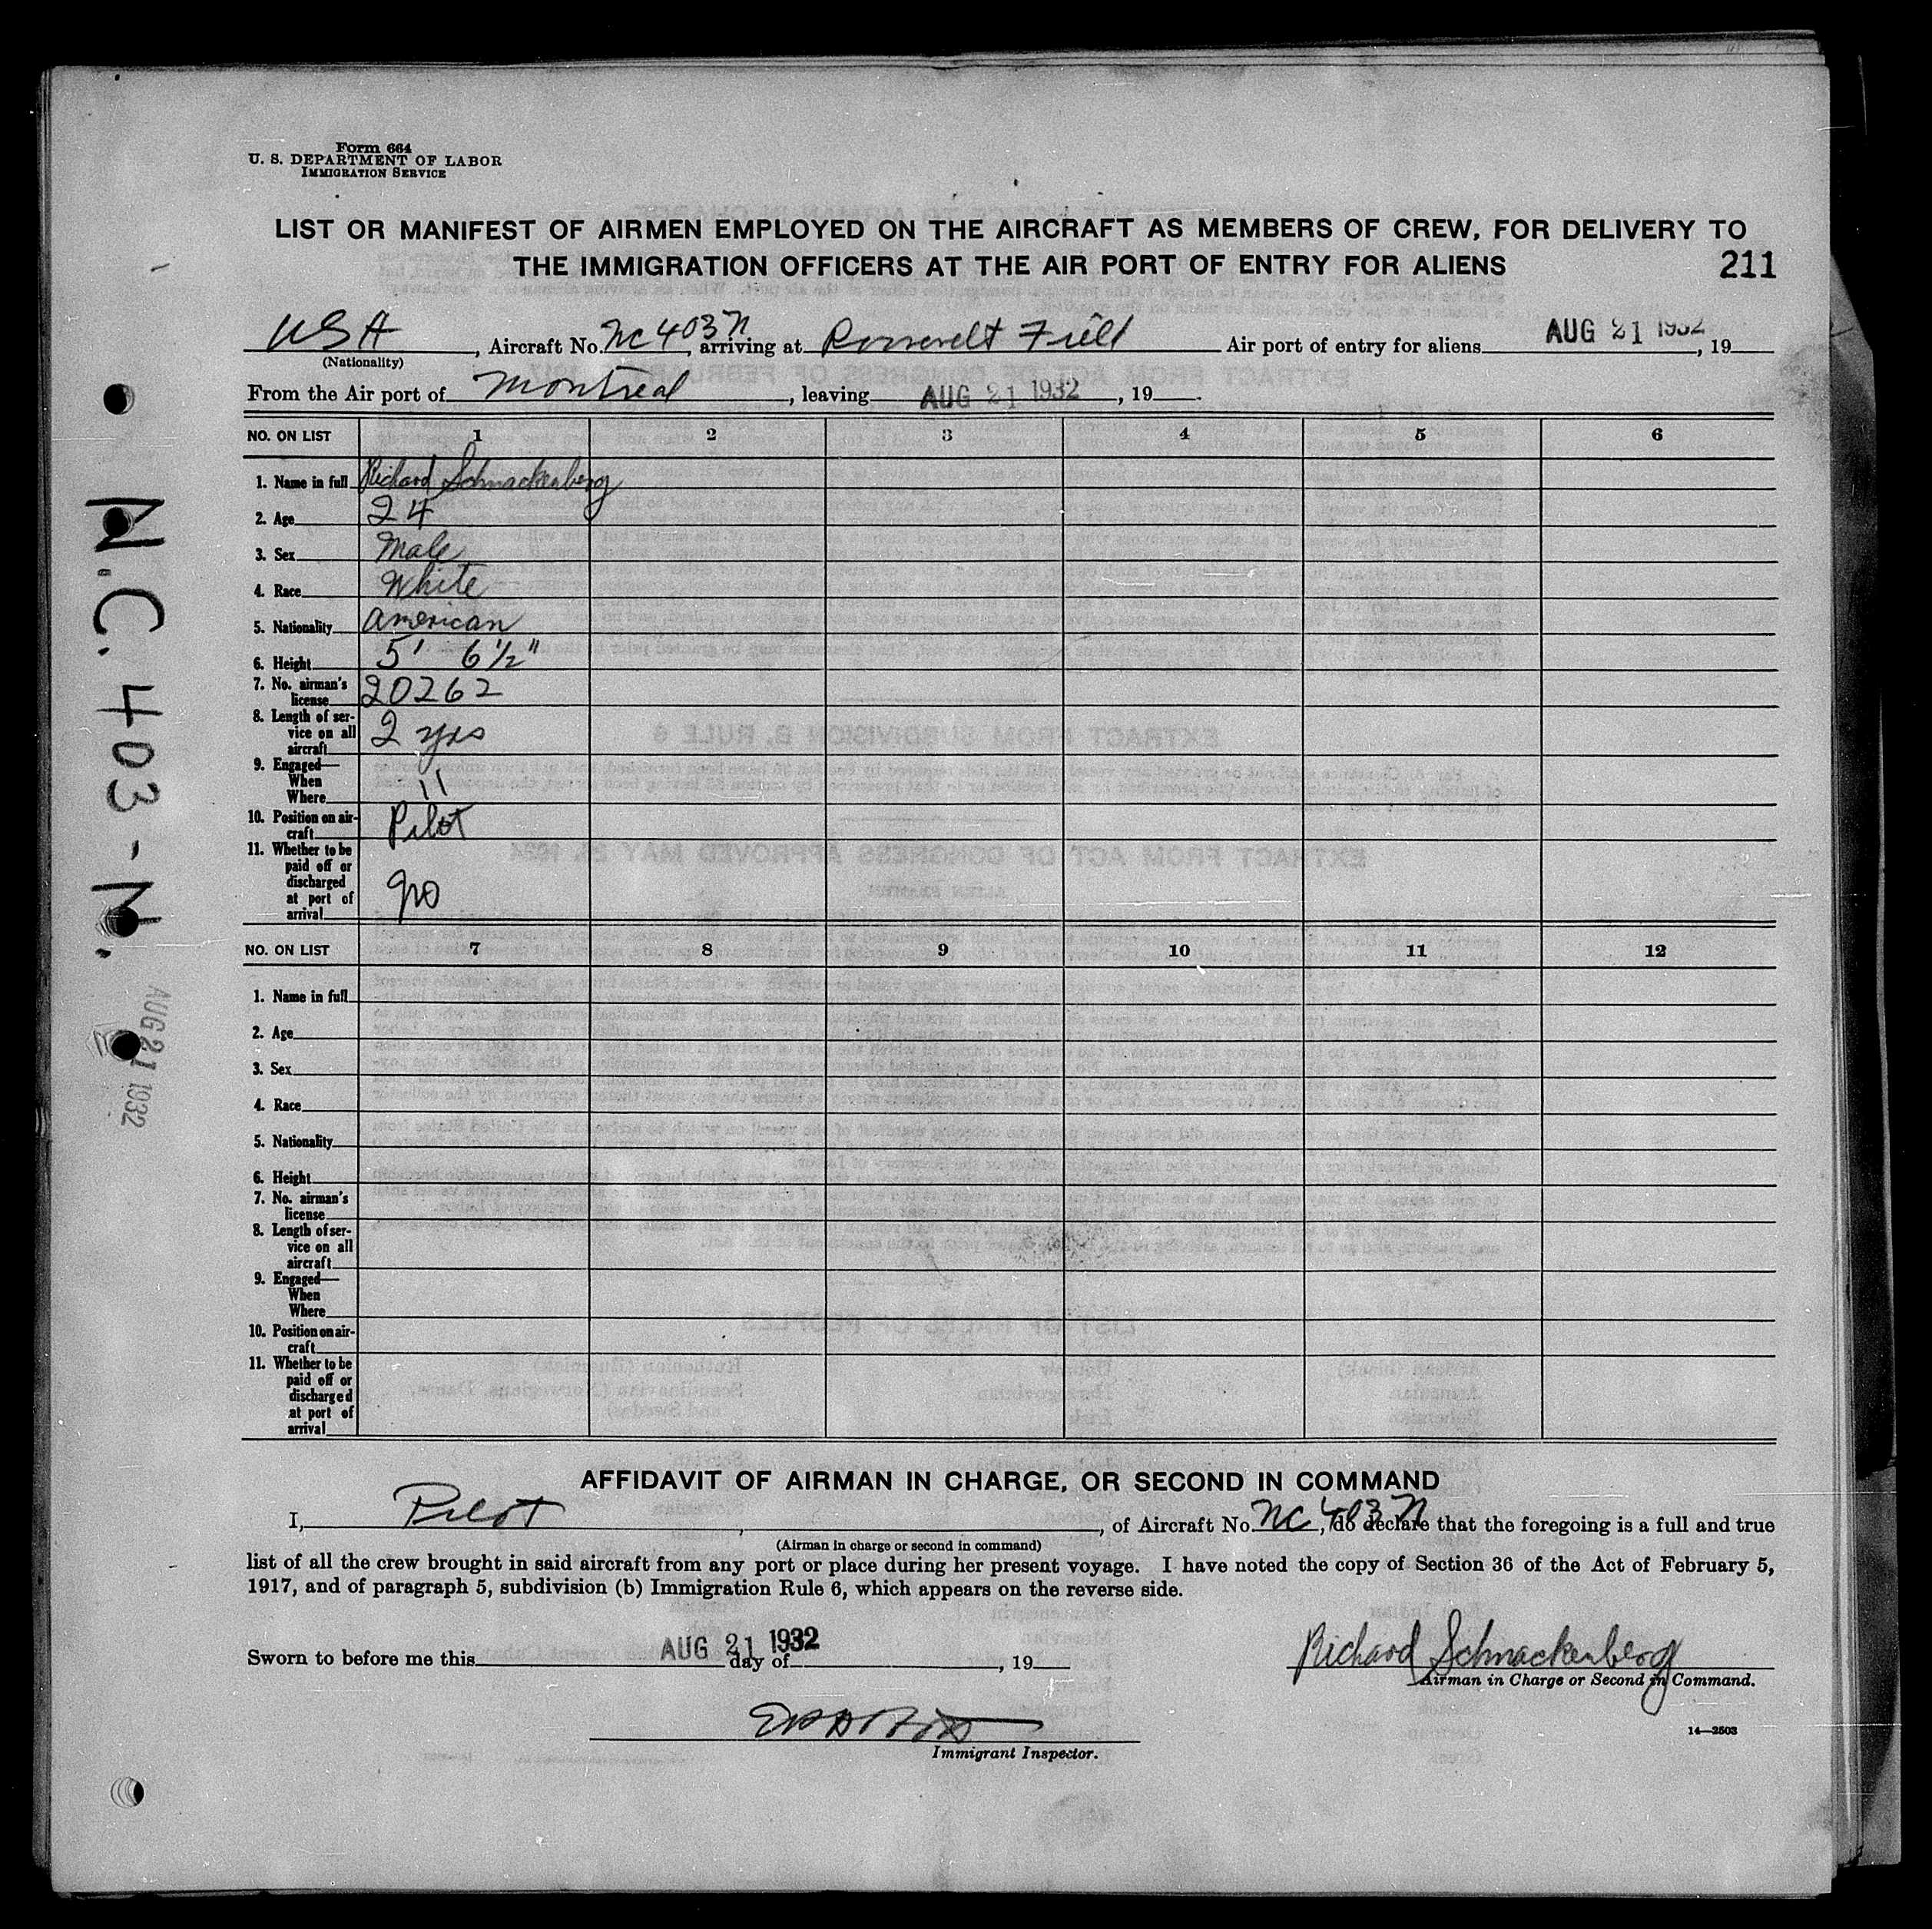 Form 664
U. S. DEPARTMENT OF LABOR
IMMIGRATION SERVICE
LIST OR MANIFEST OF AIRMEN EMPLOYED ON THE AIRCRAFT AS MEMBERS OF CREW, FOR DELIVERY TO
THE IMMIGRATION OFFICERS AT THE AIR PORT OF ENTRY FOR ALIENS
211
USA, Aircraft No. NC403N, arriving at Roosevelt Field Air port of entry for aliens AUG 21 1932, 19
(Nationality)
From the Air port of Montreal, leaving AUG 21 1932, 19.
NO. ON LIST 1 2 3 4 5 6
1. Name in full Richard Schnackenberg
2. Age 24
3. Sex Male
4. Race White
5. Nationality American
6. Height 5' 6½"
7. No. airman's
license 20262
8. Length of ser-
vice on all
aircraft 2 yrs
9. Engaged—
When
Where "
10. Position on air-
craft Pilot
11. Whether to be
paid off or
discharged
at port of
arrival no
NO. ON LIST 7 8 9 10 11 12
1. Name in full
2. Age
3. Sex
4. Race
5. Nationality
6. Height
7. No. airman's
license
8. Length of ser-
vice on all
aircraft
9. Engaged—
When
Where
10. Position on air-
craft
11. Whether to be
paid off or
discharged
at port of
arrival
AFFIDAVIT OF AIRMAN IN CHARGE, OR SECOND IN COMMAND
I, Pilot, , of Aircraft No. NC403N, do declare that the foregoing is a full and true
(Airman in charge or second in command)
list of all the crew brought in said aircraft from any port or place during her present voyage. I have noted the copy of Section 36 of the Act of February 5,
1917, and of paragraph 5, subdivision (b) Immigration Rule 6, which appears on the reverse side.
Sworn to before me this AUG 21 1932 day of , 19
Richard Schnackenberg
Airman in Charge or Second in Command.
Immigrant Inspector.
14—2503
N.C. 403-N.
AUG 21 1932